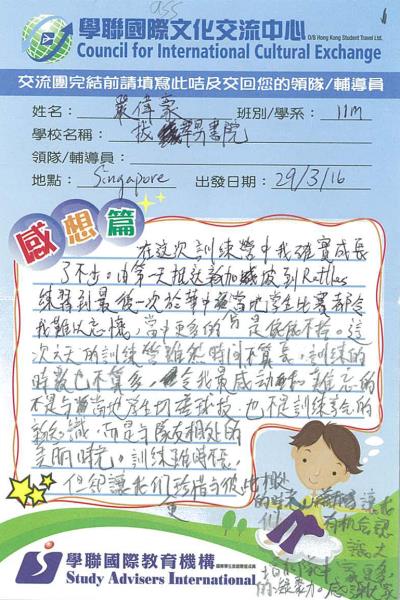 學聯國際文化交流中心
O/B Hong Kong Student Travel Ltd.
Council for International Cultural Exchange
交流團完結前請填寫此咭及交回您的領隊/輔導員
姓名:
班別/學系: 11M
學校名稱: 拔萃男書院
領隊/輔導員:
地點: Singapore 出發日期: 29/3/16
感想篇
在這次訓練營中我確實成長
了不少。由第一天抵達新加坡到Raffles
練習到最後一次於華中與當地學生比賽都令
我難以忘懷,當中更多的是依依不捨。這
次六天的訓練營雖然時間不算長,訓練的
時數也不算多,令我最感動和難忘的
不是與當地學生切磋球技,也不是訓練學的
新知識,而是與隊友相處的
美好時光。訓練雖時短,
但卻讓我們珍惜與彼此相處
學聯國際教育機構
Study Advisers International